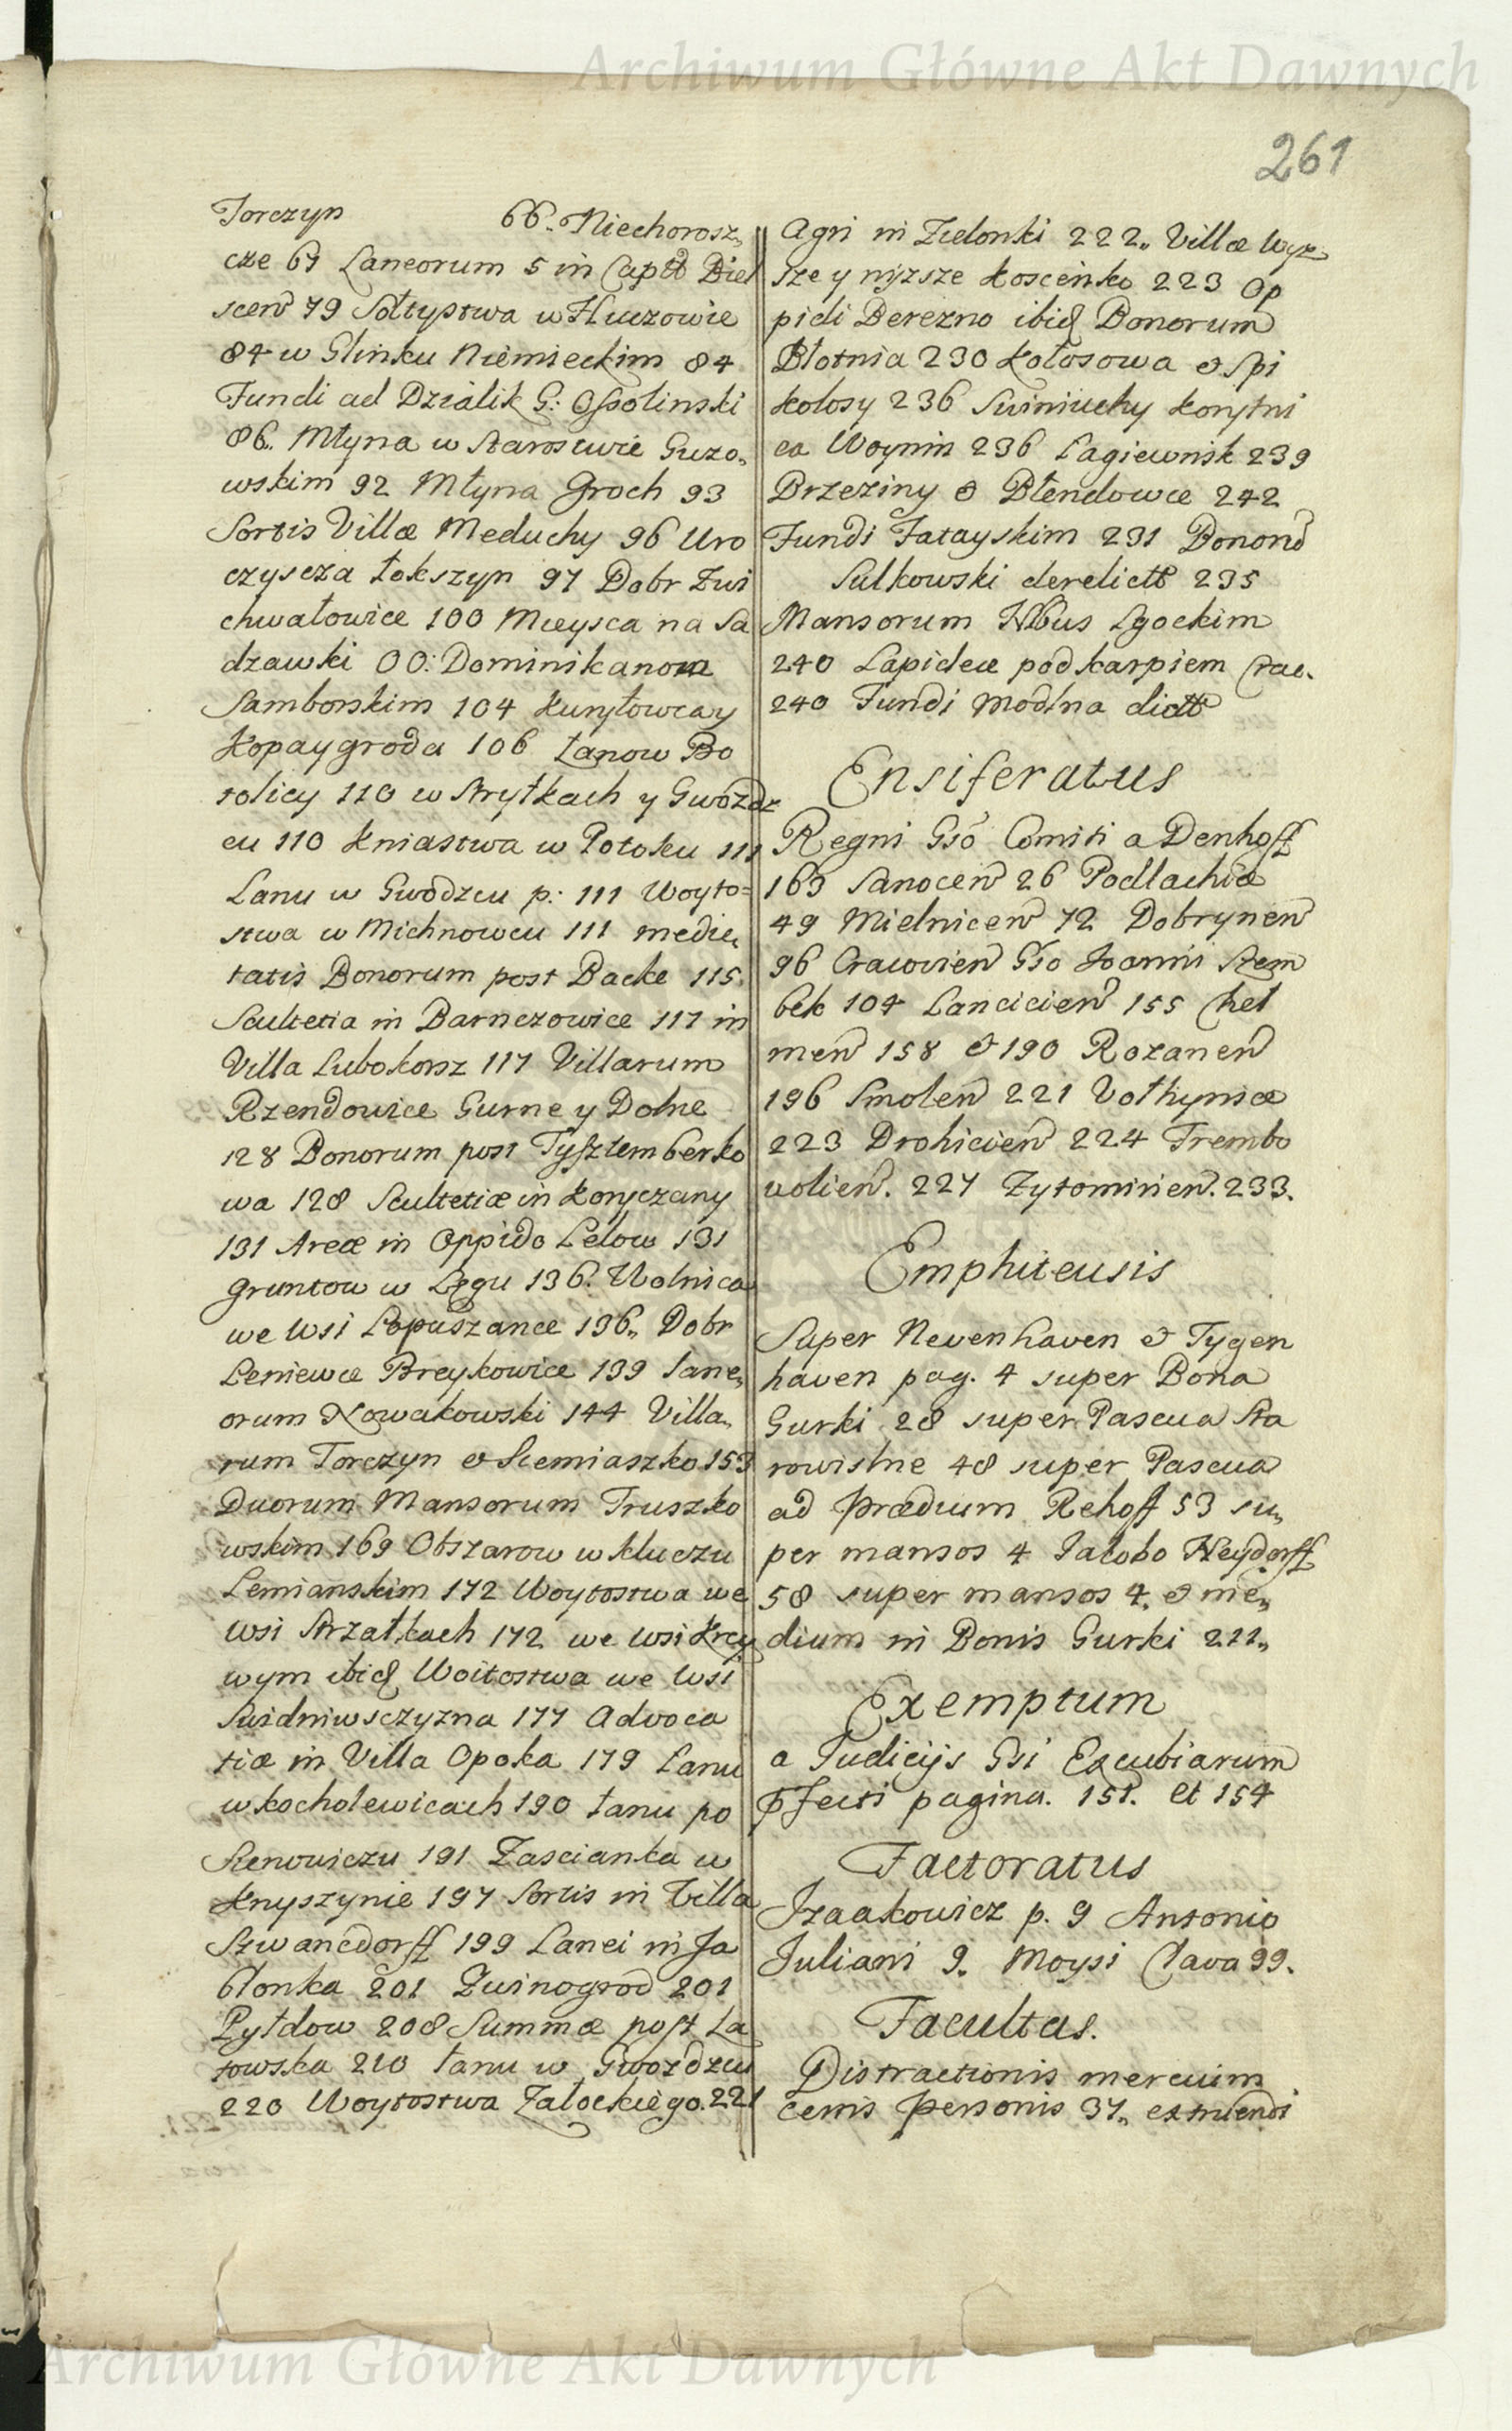 Archiwum Główne Akt Dawnych
261
Torczyn 66. Niechorosz„
cze 67 Laneorum 5 in Captt Biel
scen 79 Sołtystwa w Huczowie
84 w Glinku Niemieckim 84
Fundi ad Dzialik G: Ossolinski
86. Młyna w Starostwie Guzo„
wskim 92 Młyna Groch 93
Sortis Villæ Meduchy 96 Uro
czyscza Łokszyn 97 Dobr Zwi
chwałowice 100 Mieysca na Sa
dzawki OO: Dominikanom
Samborskim 104 Kuryłowcay
Kopaygroda 106 Łanow Bo
tolicy 110 w Strytkach y Gwozdz
cu 110 Kniastwa w Potoku 111
Lanu w Gwodzcu p: 111 Woyto=
stwa w Michnowcu 111 medie„
tatis Bonorum post Backe 115.
Scultetia in Barnczowice 117 in
Villa Lubokorsz 117 Villarum
Rzendowice Gurne y Dolne
128 Bonorum post Tyszlemberko
wa 128 Scultetiæ in Koryczany
131 Areæ in Oppido Lelow 131
Gruntow w Łęgu 136. Wolnica
we Wsi Łopuszance 136„ Dobr
Leniewce Breykowice 139 Lane„
orum Nowakowski 144 Villa„
rum Torczyn et Siemiaszko 153
Duorum Mansorum Truszko
wskim 169 Obszarow w kluczu
Lemianskim 172 Woytostwa we
Wsi Strzałkach 172 we Wsi Krzy
wym ibid Woitostwa we Wsi
Swidniwsczyzna 177 Advoca
tiæ in Villa Opoka 179 Lanu
w Kocholewicach 190 Łanu po
Stenowiczu 191 Zascianka w
Knyszynie 197 Sortis in Villa
Szwancdorff 199 Lanei in Ja
blonka 201 Zwinogrod 201
Pyłdow 208 Summæ post La
towska 210 Łanu w Gwozdzcu
220 Woytostwa Załockiego. 221
Agri in Zielonki 222„ Villæ Wyz
sze y nizsze Koscienko 223 Op
pidi Berezno ibid Bonorum
Błotnia 230 Kołosowa et Spi
kolosy 236 Swiniuchy Korytni
ca Woynin 236 Lagiewnik 239
Brzeziny et Błendowce 242
Fundi Fatayskim 231 Bonorũ
Sulkowski derelictt 235
Mansorum Nbus Lgockim
240 Lapideæ pod karpiem Crac.
240 Fundi Modlna dictt
Ensiferatus
Regni Gsó Comiti a Denhoff
163 Sanocen 26 Podlachiæ
49 Mielnicen 72 Dobrynen
96 Cracovien Gso Joanni Szem
bek 104 Lancicien 155 Chel
men 158 et 190 Rozanen
196 Smolen 221 Volhyniæ
223 Drohicien 224 Trembo
wolien. 227 Zytomirien. 233.
Emphiteusis
Super Neuenhaven et Tygen
haven pag. 4 super Bona
Gurki 28 super Pascua Sta
rowislne 48 super Pascua
ad Prædium Rehoff 53 su„
per mansos 4 Jacobo Heydorff
58 super mansos 4. et me„
dium in Bonis Gurki 211„
Exemptum
a Judicijs Gsi Excubiarum
Pfecti pagina. 151. et 154
Factoratus
Izaakowicz p. 9 Antonio
Juliani 9. Moysi Clava 99.
Facultas.
Distractionis mercium
certis Personis 37„ extruendi
Archiwum Główne Akt Dawnych